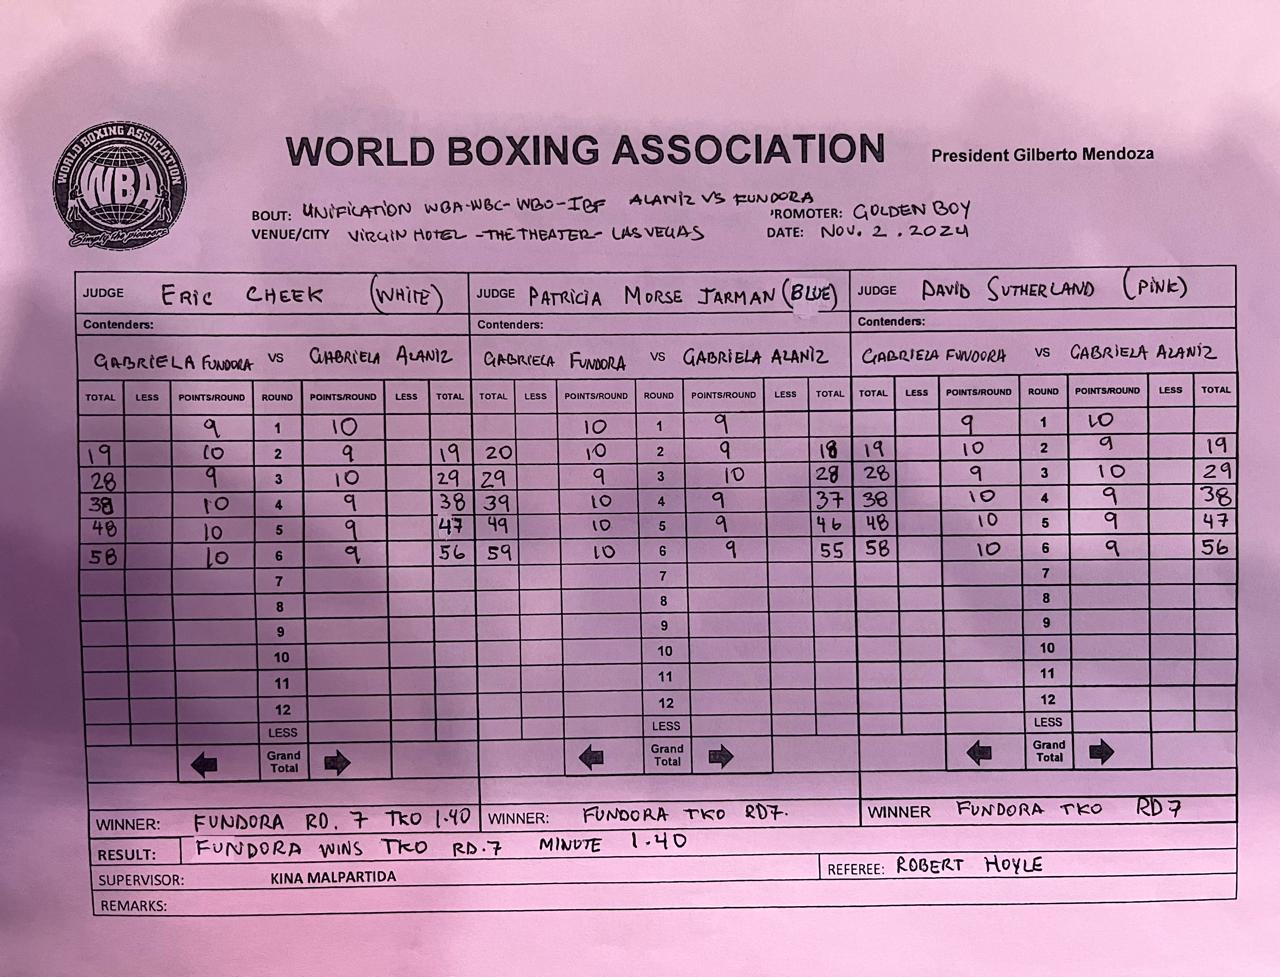 WORLD BOXING ASSOCIATION
WBA
Simply the pioneers
WORLD BOXING ASSOCIATION President Gilberto Mendoza
BOUT: UNIFICATION WBA-WBC-WBO-IBF ALANIZ VS FUNDORA 'ROMOTER: GOLDEN BOY
VENUE/CITY VIRGIN HOTEL -THE THEATER- LAS VEGAS DATE: NOV. 2. 2024
JUDGE ERIC CHEEK (WHITE) JUDGE PATRICIA MORSE JARMAN (BLUE) JUDGE DAVID SUTHERLAND (PINK)
Contenders: Contenders: Contenders:
GABRIELA FUNDORA VS GABRIELA ALANIZ GABRIELA FUNDORA VS GABRIELA ALANIZ GABRIELA FUNDORA VS GABRIELA ALANIZ
TOTAL LESS POINTS/ROUND ROUND POINTS/ROUND LESS TOTAL TOTAL LESS POINTS/ROUND ROUND POINTS/ROUND LESS TOTAL TOTAL LESS POINTS/ROUND ROUND POINTS/ROUND LESS TOTAL
9 1 10 10 1 9 9 1 10
19 10 2 9 19 20 10 2 9 18 19 10 2 9 19
28 9 3 10 29 29 9 3 10 28 28 9 3 10 29
38 10 4 9 38 39 10 4 9 37 38 10 4 9 38
48 10 5 9 47 49 10 5 9 46 48 10 5 9 47
58 10 6 9 56 59 10 6 9 55 58 10 6 9 56
7 7 7
8 8 8
9 9 9
10 10 10
11 11 11
12 12 12
LESS LESS LESS
Grand Total Grand Total Grand Total
WINNER: FUNDORA RD. 7 TKO 1.40 WINNER: FUNDORA TKO RD7. WINNER FUNDORA TKO RD 7
RESULT: FUNDORA WINS TKO RD.7 MINUTE 1.40
SUPERVISOR: KINA MALPARTIDA REFEREE: ROBERT HOYLE
REMARKS: